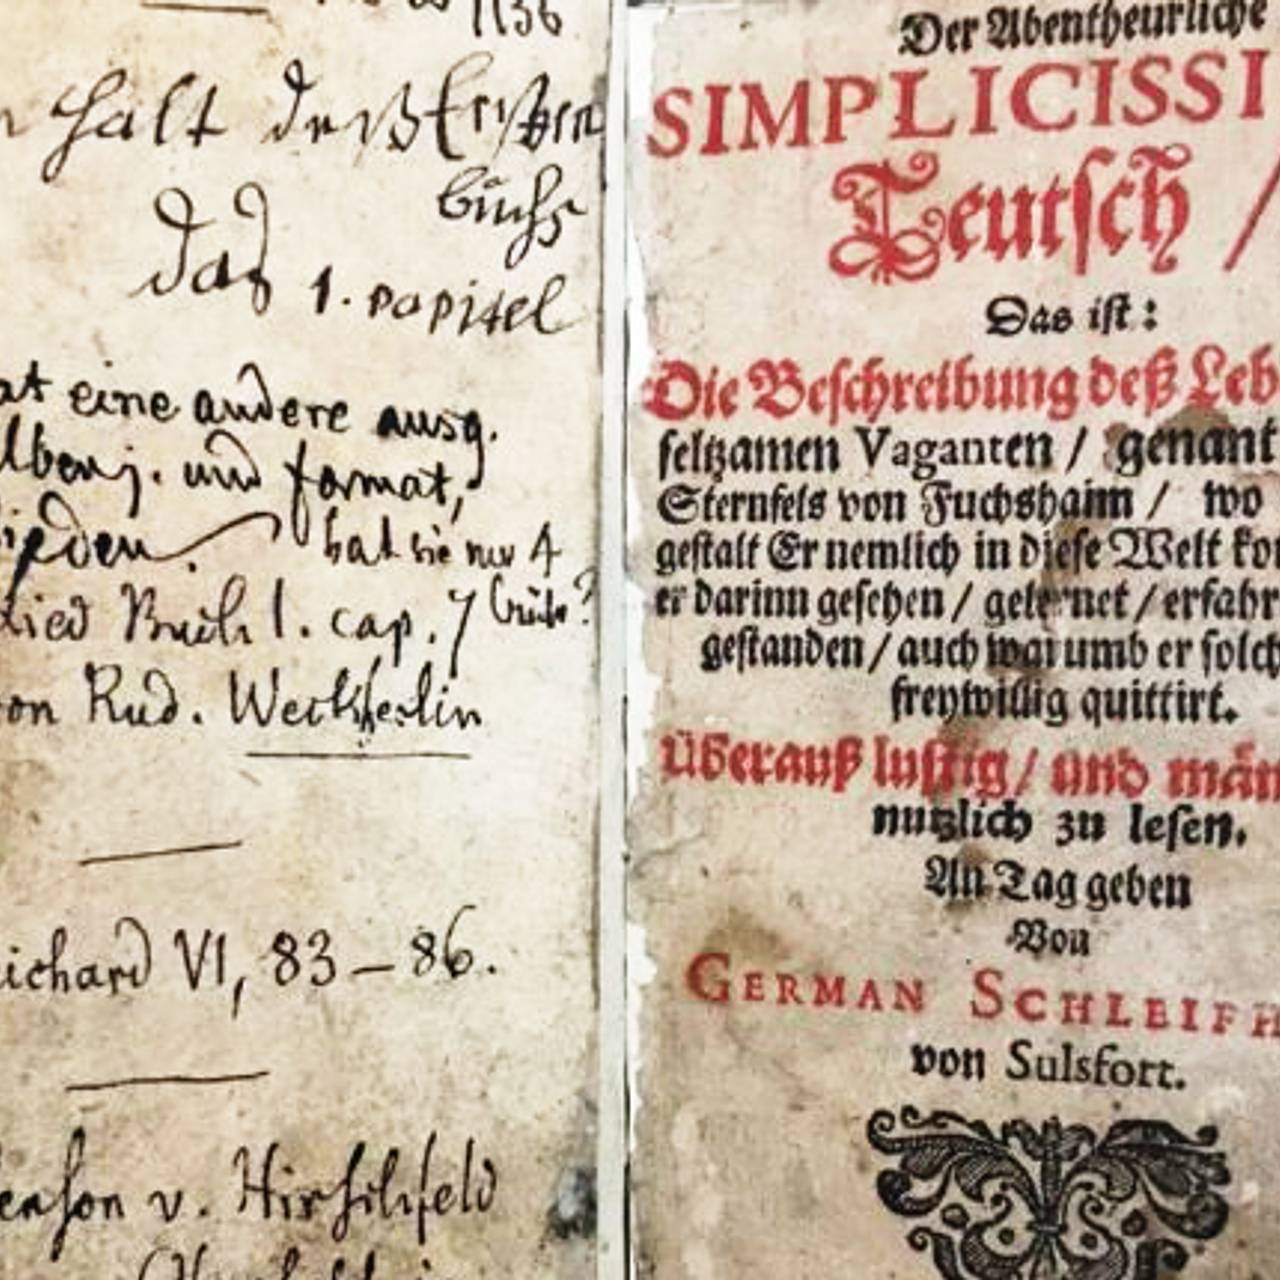 1136
halt deß Ersten
buchs
das 1. capitel
at eine andere ausg.
und format,
hat sie nur 4
lied Buch 1. cap. 7 büch.?
on Rud. Weckherlin
ichard VI, 83 – 86.
v. Hirschfeld
Der Abentheurliche
SIMPLICISSI
Teutsch /
Das ist:
Die Beschreibung deß Leb
seltzamen Vaganten / genant
Sternfels von Fuchshaim / wo
gestalt Er nemlich in diese Welt kom
er darinn gesehen / gelernet / erfahr
gestanden / auch warumb er solch
freywillig quittirt.
Überauß lustig / und män
nutzlich zu lesen.
An Tag geben
Von
GERMAN SCHLEIFH
von Sulsfort.